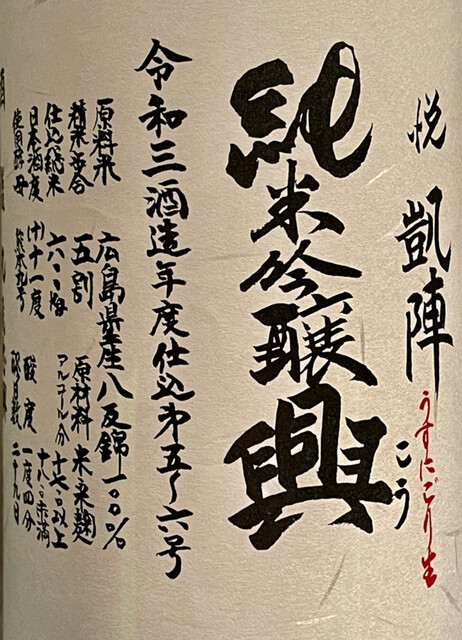 悦 凱陣
うすにごり生
純米吟醸 興
こう
令和三酒造年度仕込第五〜六号
原料米 広島県産八反錦一〇〇%
精米歩合 五割 原材料 米米麹
仕込総米 六〇〇瓩 アルコール分 十七度以上十八度未満
日本酒度 (+)十一度 酸度 一度四分
使用酵母 熊本九号 醪日数 二十九日